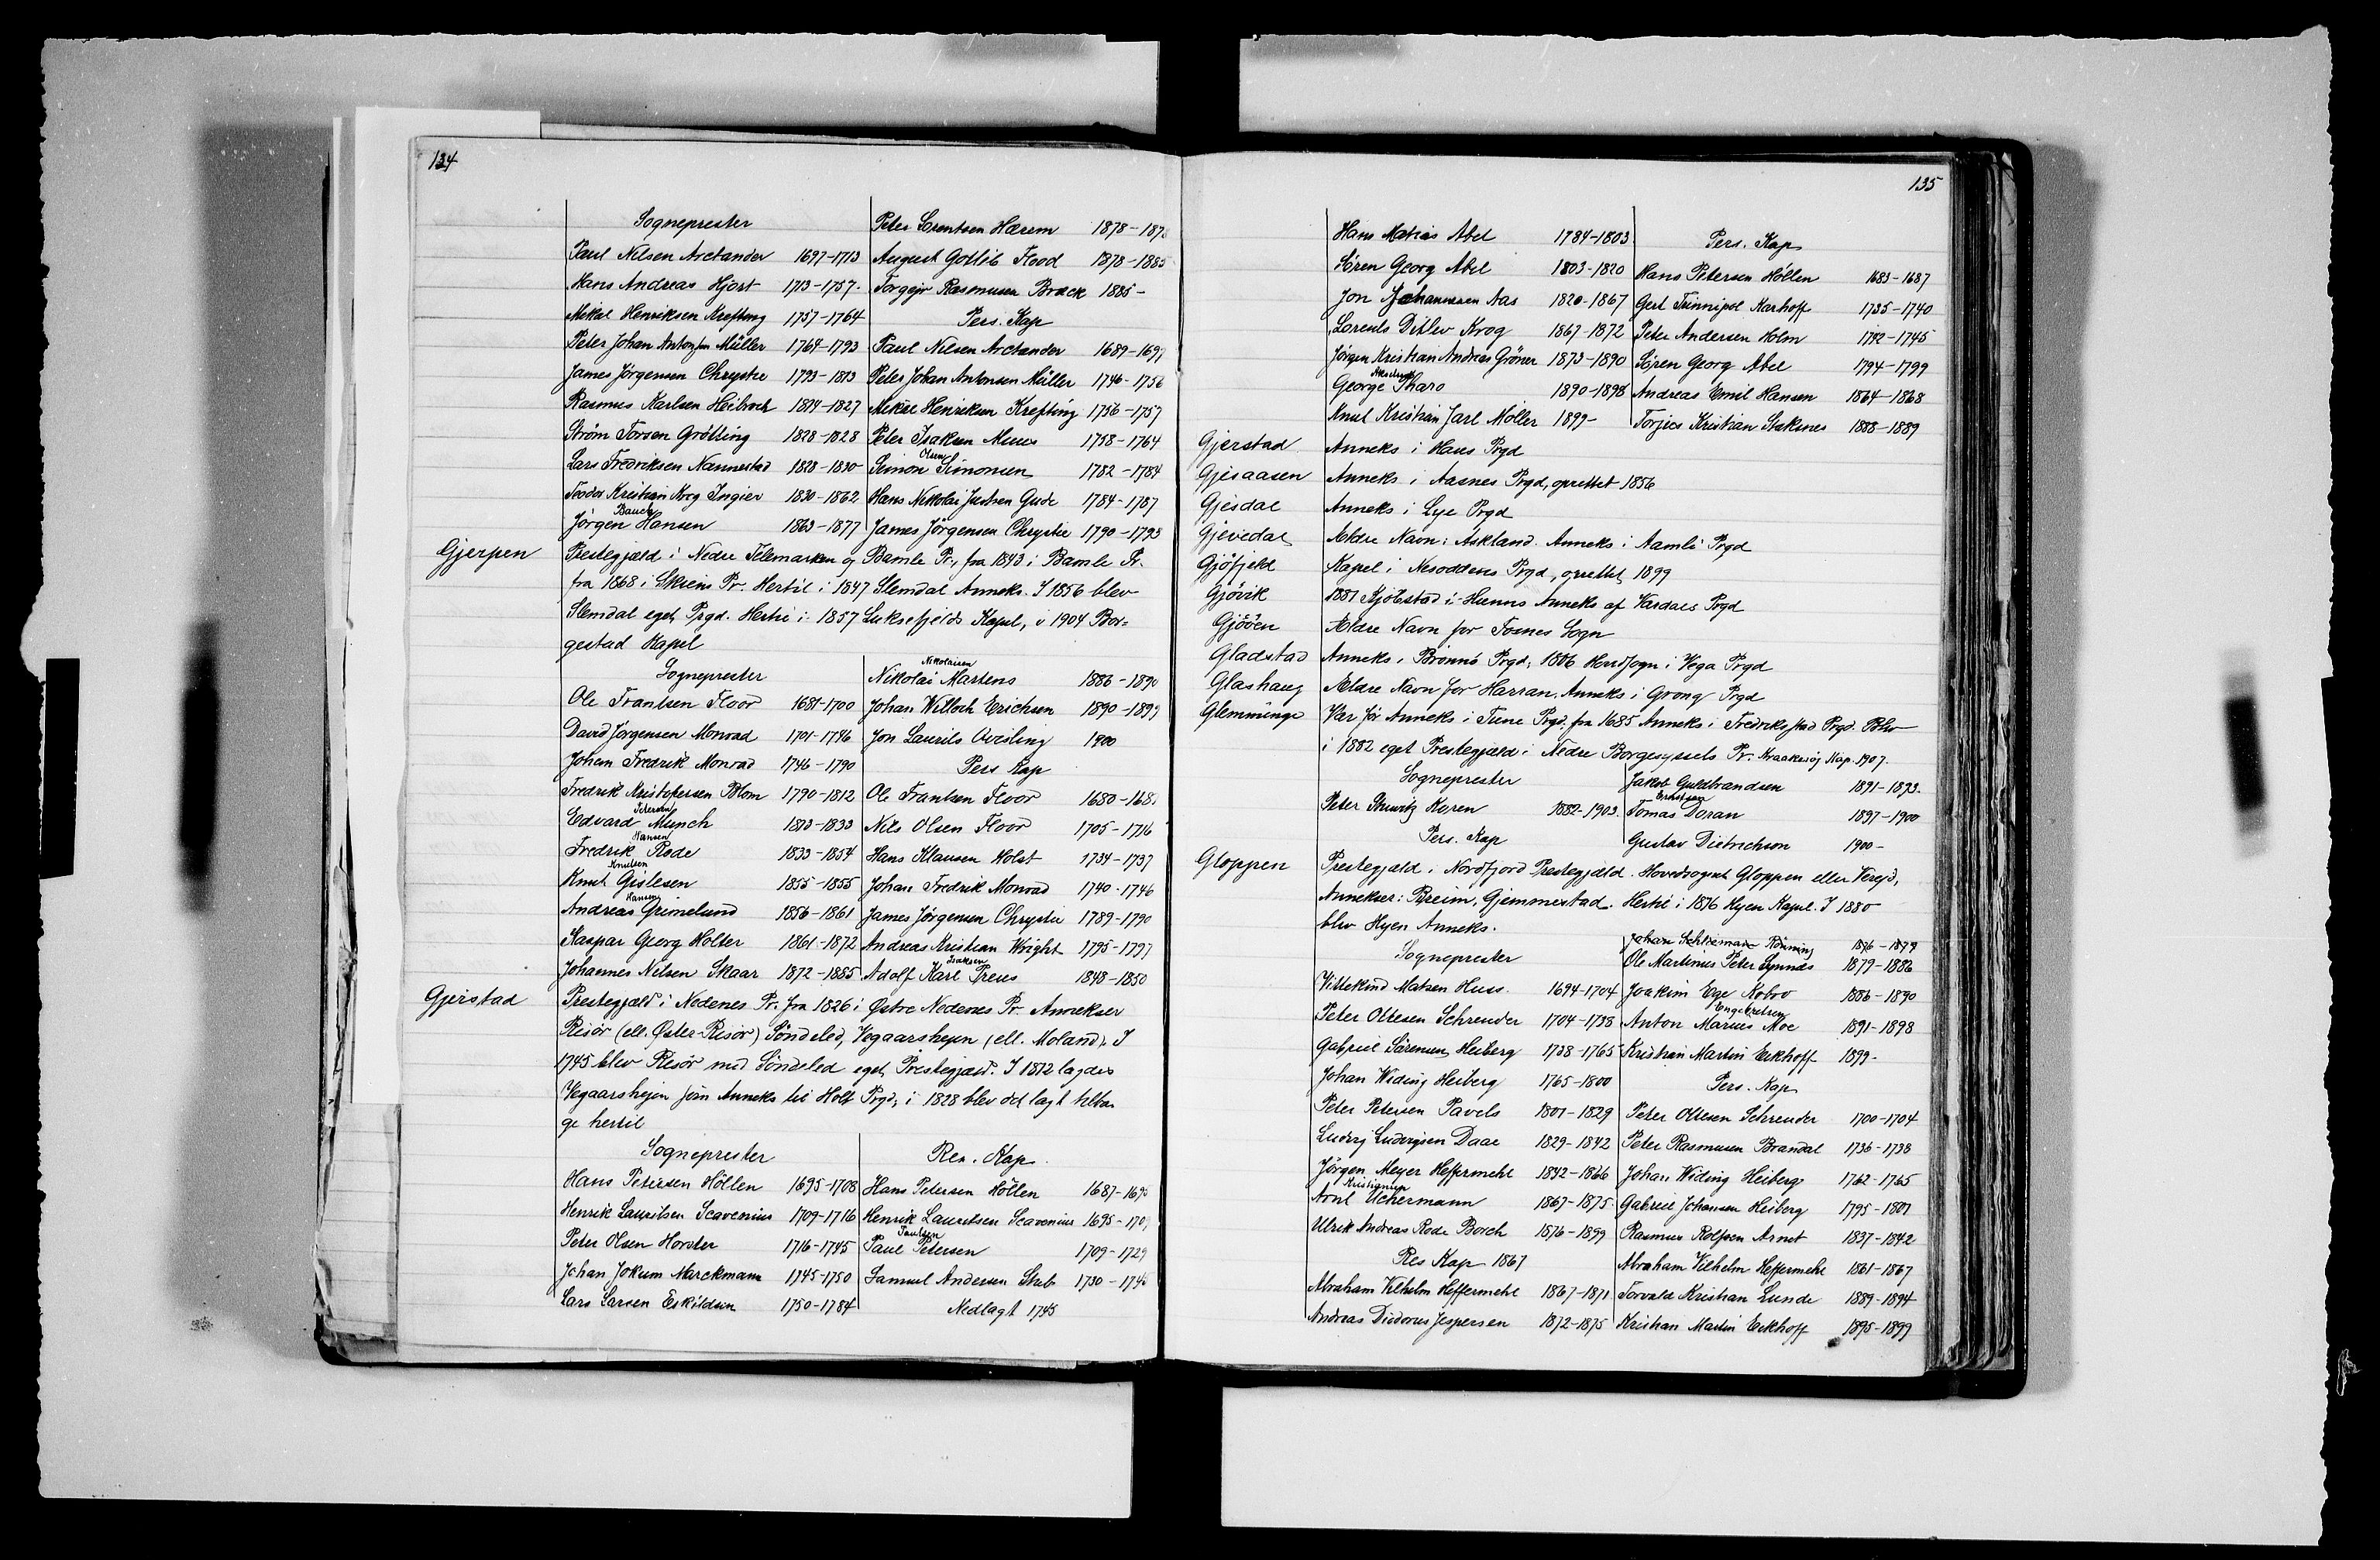 134
Sogneprester
Paul Nilsen Arctander 1697-1713
Hans Andreas Hjort 1713-1757.
Mikal Henriksen Krefting 1757-1764
Peter Johan Antonsen Müller 1764-1793
James Jörgensen Chrystie 1793-1813
Rasmus Karlsen Heiberch 1814-1827
Ström Torsen Grötting 1828-1828
Lars Fredriksen Nannestad 1828-1830
Teodor Kristian Krog Ingier 1830-1862
Bauck
Jörgen Hansen 1863-1877
Peter Lorentsen Hærem 1878-187
August Gotlib Flood 1878-1885
Torgejr Rasmussen Bræck 1885-
Pers. Kap
Paul Nilsen Arctander 1689-1697
Peter Johan Antonsen Müller 1746-1756
Mikal Henriksen Krefting 1756-1757
Peter Isaksen Muus 1758-1764
Olsen
Simon Simonsen 1782-1784
Hans Nikolai Justsen Gude 1784-1787
James Jörgensen Chrystie 1790-1793
Gjerpen Prestegjæld i Nedre Telemarken og Bamle Pr., fra 1843 i Bamle Pr.
fra 1868 i Skiens Pr. Hertil i 1847 Slemdal Anneks. I 1856 blev
Slemdal eget Prgd. Hertil i 1857 Luksefjelds Kapel, i 1904 Bor=
gestad Kapel
Sogneprester
Ole Frantsen Floor 1681-1700
David Jörgensen Monrad 1701-1746
Johan Fredrik Monrad 1746-1790
Fredrik Kristofersen Blom 1790-1812
Petersen
Edvard Munch 1813-1833
Hansen
Fredrik Rode 1833-1854
Knutsen
Knut Gislesen 1855-1855
Hansen
Andreas Grimelund 1856-1861
Kaspar Georg Holter 1861-1872
Johannes Nilsen Skaar 1872-1885
Nikolaisen
Nikolai Martens 1886-1890
Johan Willoch Erichsen 1890-1899
Jon Laurits Qvisling 1900
Pers Kap
Ole Frantsen Floor 1680-168
Nils Olsen Floor 1705-1716
Hans Klausen Holst 1734-1737
Johan Fredrik Monrad 1740-1746
James Jörgensen Chrystie 1789-1790
Andreas Kristian Wright 1795-1797
Isaksen
Adolf Karl Preus 1848-1850
Gjerstad Prestegjæld i Nedenes Pr. fra 1826 i Østre Nedenes Pr. Annekser
Risör (ell. Øster-Risör) Söndeled, Vegaarshejen (ell. Moland). I
1745 blev Risör med Söndeled eget Prestegjæld. I 1812 lagdes
Vegaarshejen som Anneks til Holt Prgd; i 1828 blev det lagt tilba
ge hertil
Sogneprester
Hans Petersen Höllen 1695-1708
Henrik Lauritsen Scavenius 1709-1716
Peter Olsen Horster 1716-1745
Johan Jokum Marckmann 1745-1750
Lars Larsen Eskildsen 1750-1784
Res. Kap.
Hans Petersen Höllen 1687-1695
Henrik Lauritsen Scavenius 1695-1709
Paulsen
Paul Petersen 1709-1729
Samuel Andersen Skub 1730-1746
Nedlagt 1745
135
Hans Matias Abel 1784-1803
Sören Georg Abel 1803-1820
Jon Johannessen Aas 1820-1867
Lorents Ditlev Krog 1867-1872
Jörgen Kristian Andreas Gröner 1873-1890
George Pharo 1890-1898
Knut Kristian Jarl Möller 1899-
Pers. Kap
Hans Petersen Höllen 1683-1687
Gert Trinnipol Karhoff 1735-1740
Peter Andersen Holm 1742-1745
Sören Georg Abel 1794-1799
Andreas Emil Hansen 1864-1868
Torjus Kristian Stakenes 1888-1889
Gjerstad Anneks i Haus Prgd
Gjesaasen Anneks i Aasnes Prgd, oprettet 1856
Gjesdal Anneks i Lye Prgd
Gjevedal Ældre Navn: Askland. Anneks i Aamli Prgd
Gjöfjeld Kapel i Nesoddens Prgd, oprettet 1899
Gjövik 1881 Kjöbstad i Hunns Anneks af Vardals Prgd
Gjöön Ældre Navn for Fosnes Sogn
Gladstad Anneks i Brönnö Prgd; 1806 Hovedsogn i Vega Prgd
Glashaug Ældre Navn for Harran, Anneks i Grong Prgd
Glemminge Var för Anneks i Tune Prgd. fra 1685 Anneks i Fredrikstad Prgd. Blev
i 1882 eget Prestegjæld i Nedre Borgesyssels Pr. Kraakeröy Kap. 1907.
Sogneprester
Peter Koren 1882-1903
Pers. Kap
Jakob Guldbrandsen 1891-1893.
Ernstsen
Tomas Doran 1897-1900
Gustav Dietrichson 1900-
Gloppen Prestegjæld i Nordfjord Prestegjæld. Hovedsognet Gloppen eller Vereid,
Annekser: Breim, Gjemmestad. Hertil i 1876 Hyen Kapel. I 1880
blev Hyen Anneks.
Sogneprester
Vittekind Matsen Huus. 1694-1704
Peter Ottesen Schreuder 1704-1738
Gabriel Sörensen Heiberg 1738-1765
Johan Widing Heiberg 1765-1800
Peter Petersen Pavels 1801-1829
Ludvig Ludvigsen Daae 1829-1842
Jörgen Meyer Heffermehl 1842-1866
Kristiansen
Arnt Uchermann 1867-1875
Ulrik Andreas Rode Borch 1876-1899
Res Kap 1867
Abraham Vilhelm Heffermehl 1867-1871
Andreas Diderius Jespersen 1872-1875
Johan Schliemann Rönning 1876-1879
Ole Martinus Peter Synnæs 1879-1886
Joakim Ege Kobro 1886-1890
Engebretsen
Anton Marius Moe 1891-1898
Kristian Martin Eckhoff 1899-
Pers. Kap
Peter Ottesen Schreuder 1700-1704
Peter Rasmussen Brandal 1736-1738
Johan Widing Heiberg 1762-1765
Gabriel Johansen Heiberg 1795-1801
Rasmus Rolfsen Arnet 1837-1842
Abraham Vilhelm Heffermehl 1861-1867
Torvald Kristian Lunde 1889-1894
Kristian Martin Eckhoff 1895-1899